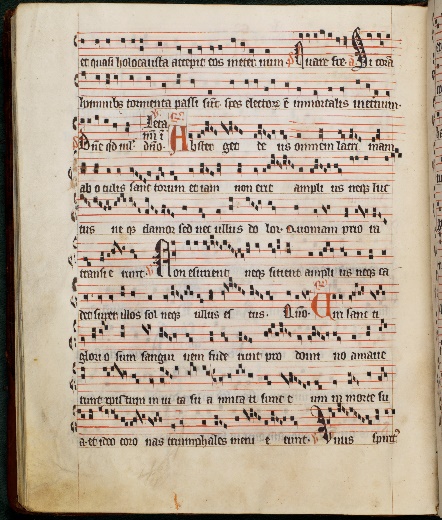 et quasi holocausta accepit eos in eter num Quare fre Et si corā
hominibꝫ tormenta passi sūt spes electorꝫ ē immortalis in eternum
Dn̄e qd mlꝰ Leta mi ī dn̄o Abster get de us omnem lacri mam
ab o culis sanc torum et iam non erit ampli us neqꝫ luc
tus ne qꝫ clamor sed nec ullus do lor Quoniam prio ra
transi e runt Non esurient neqꝫ sitient ampli us neqꝫ ca
det super illos sol neqꝫ ullus es tus Qn̄o Am sanc ti
glori o sum sangui nem fude runt pro domi no amaue
runt xpistum in ui ta su a imita ti sunt e um in morte su
a et ideo coro nas triumphales meru e runt Vnus spirit